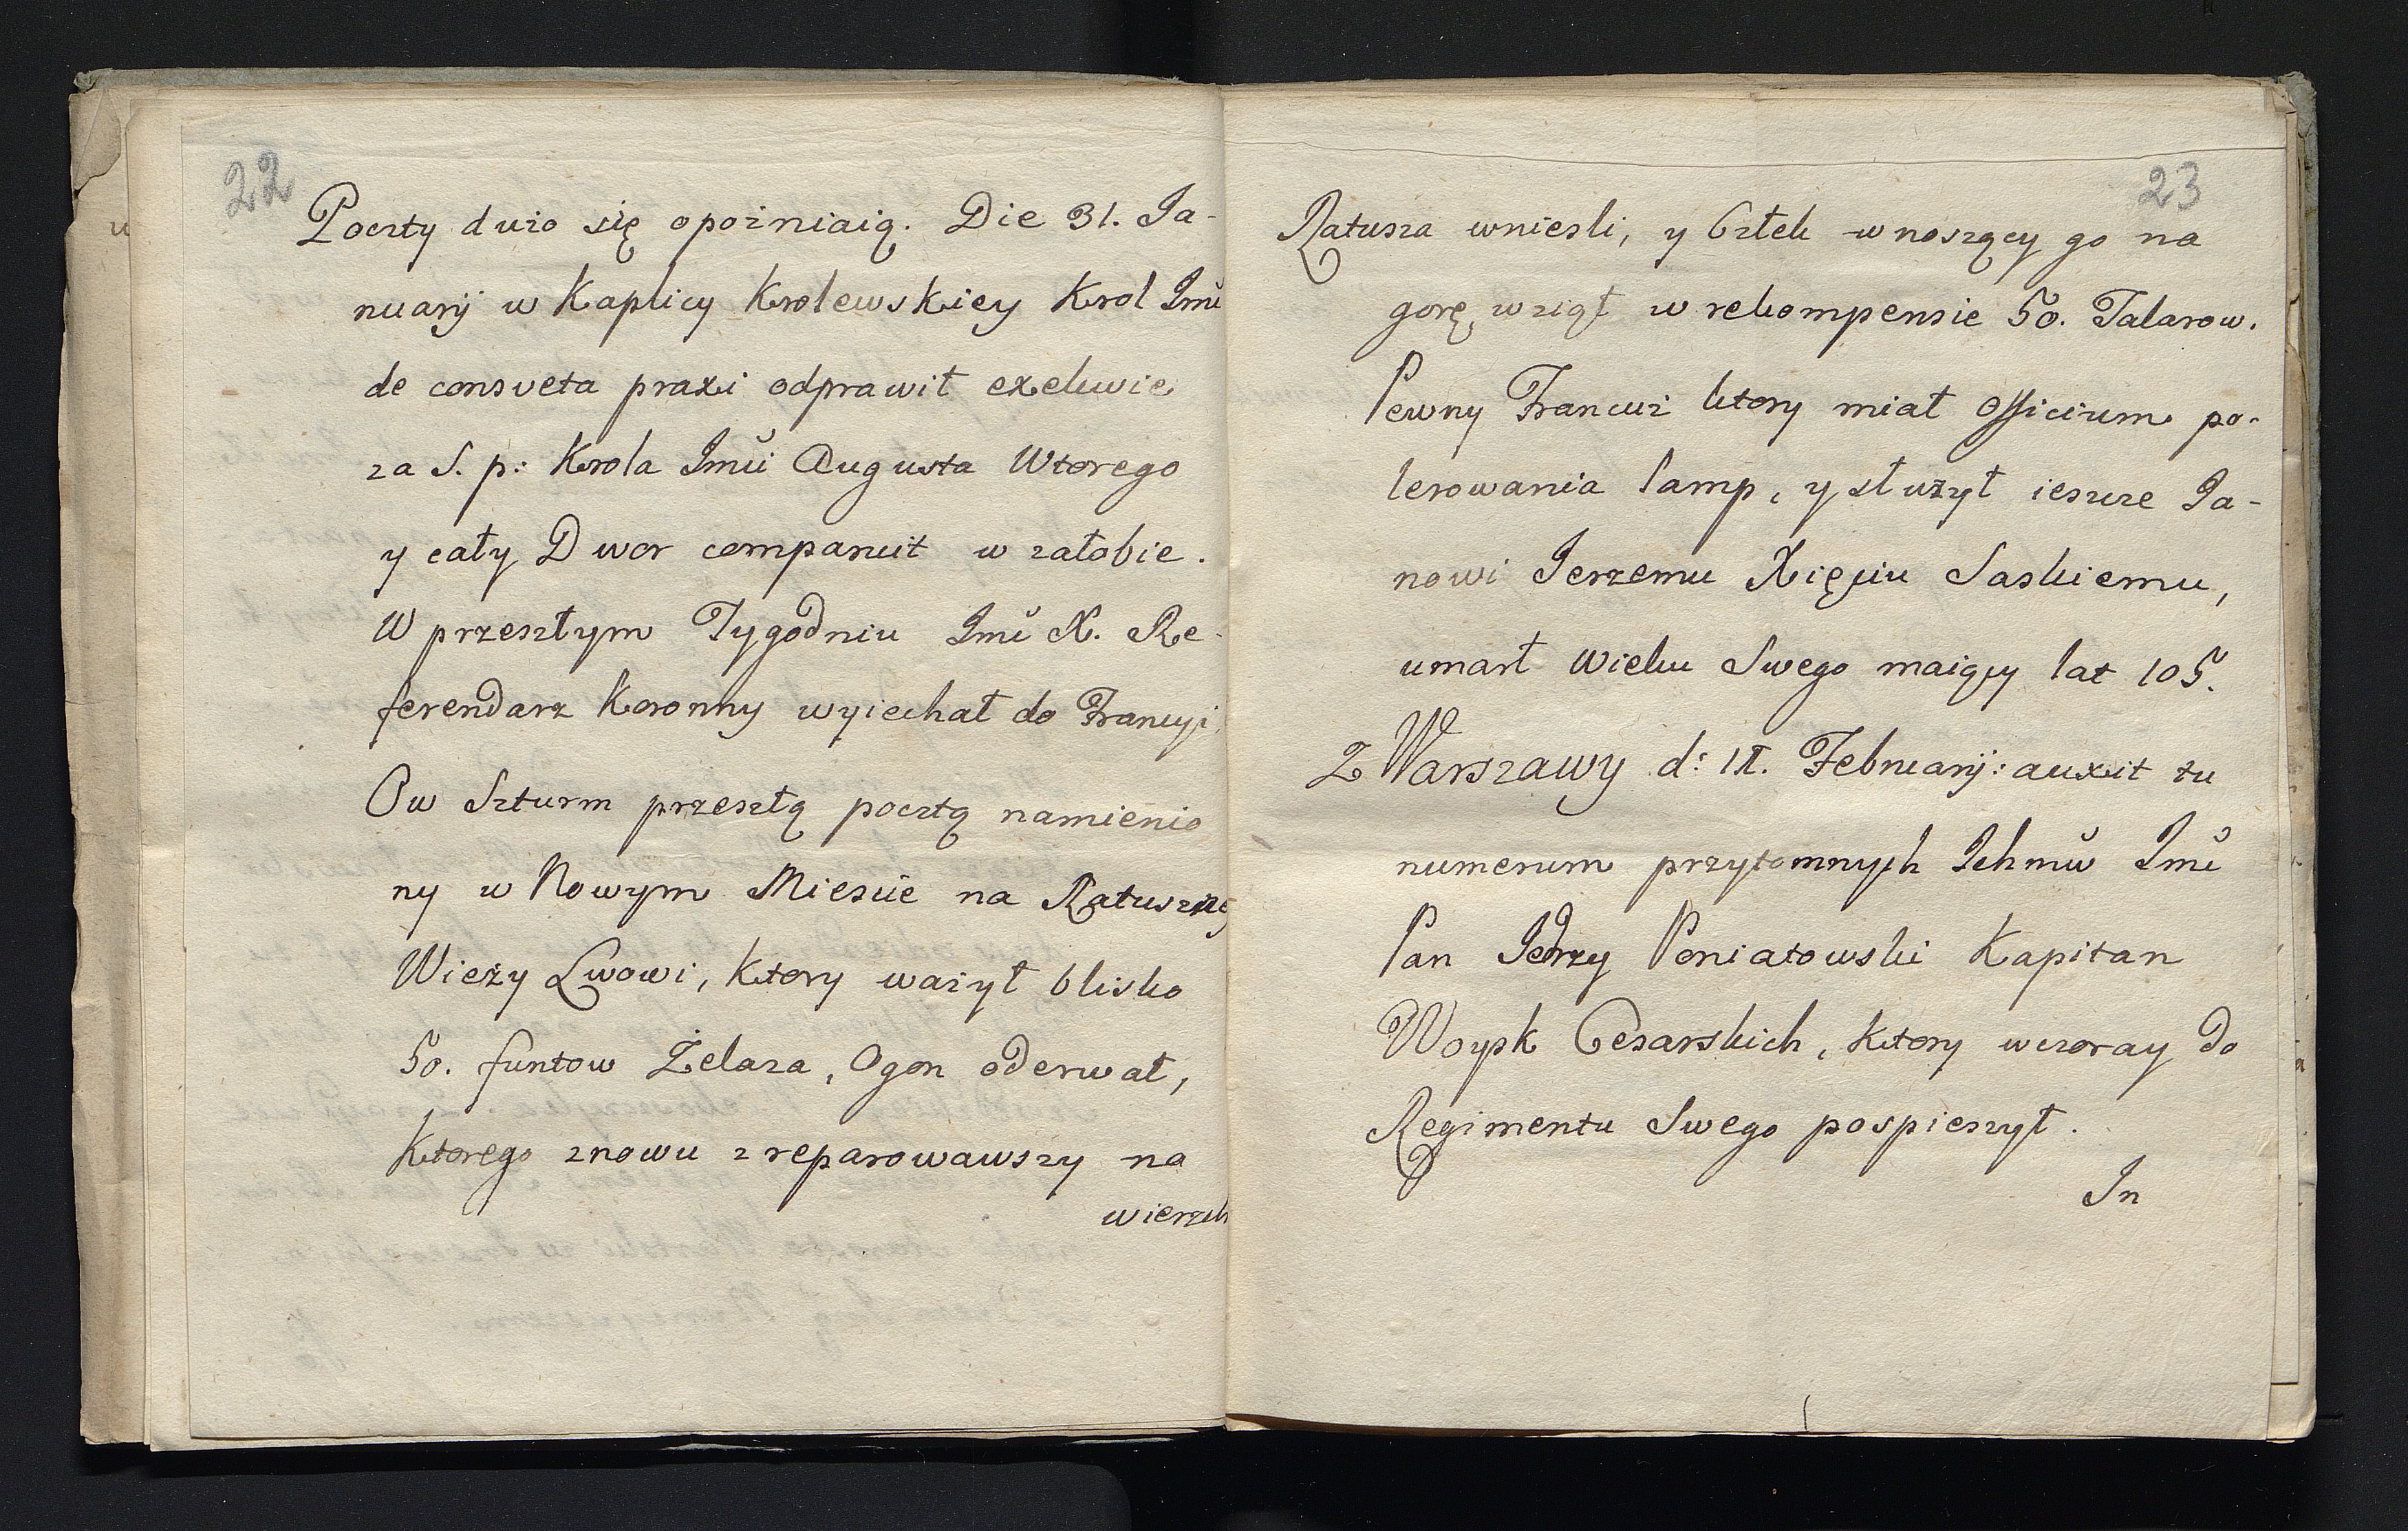 22
Poczty dużo się opoźniaią. Die 31. Ja-
nuarij w Kaplicy Krolewskiey Krol Jmć
de consveta praxi odprawił exekwie
za S. p: Krola Jmći Augusta Wtorego
y cały Dwor comparuit w załobie.
W przeszłym Tygodniu Jmć X. Re-
ferendarz Koronny wyiechał do Francyi.
Ow Szturm przeszłą pocztą namienio
ny w Nowym Miescie na Ratuszney
Wieży Lwowi, ktory ważył blisko
50. funtow Żelaza, Ogon oderwał,
ktorego znowu zreparowawszy na
wierzch
23
Ratusza wniesli, y Człek wnoszący go na
gorę wziął w rekompensie 50. Talarow.
Pewny Francuz ktory miał Officium po-
lerowania lamp, y służył ieszcze Ja-
nowi Jerzemu Xięciu Saskiemu,
umarł wieku Swego maiący lat 105.
Z Warszawy d: 11. Februarij: auxit tu
numerum przytomnych Ichmćw Jmć
Pan Jędrzy Poniatowski Kapitan
Woysk Cesarskich, ktory wczoray do
Regimentu Swego pospieszył.
In